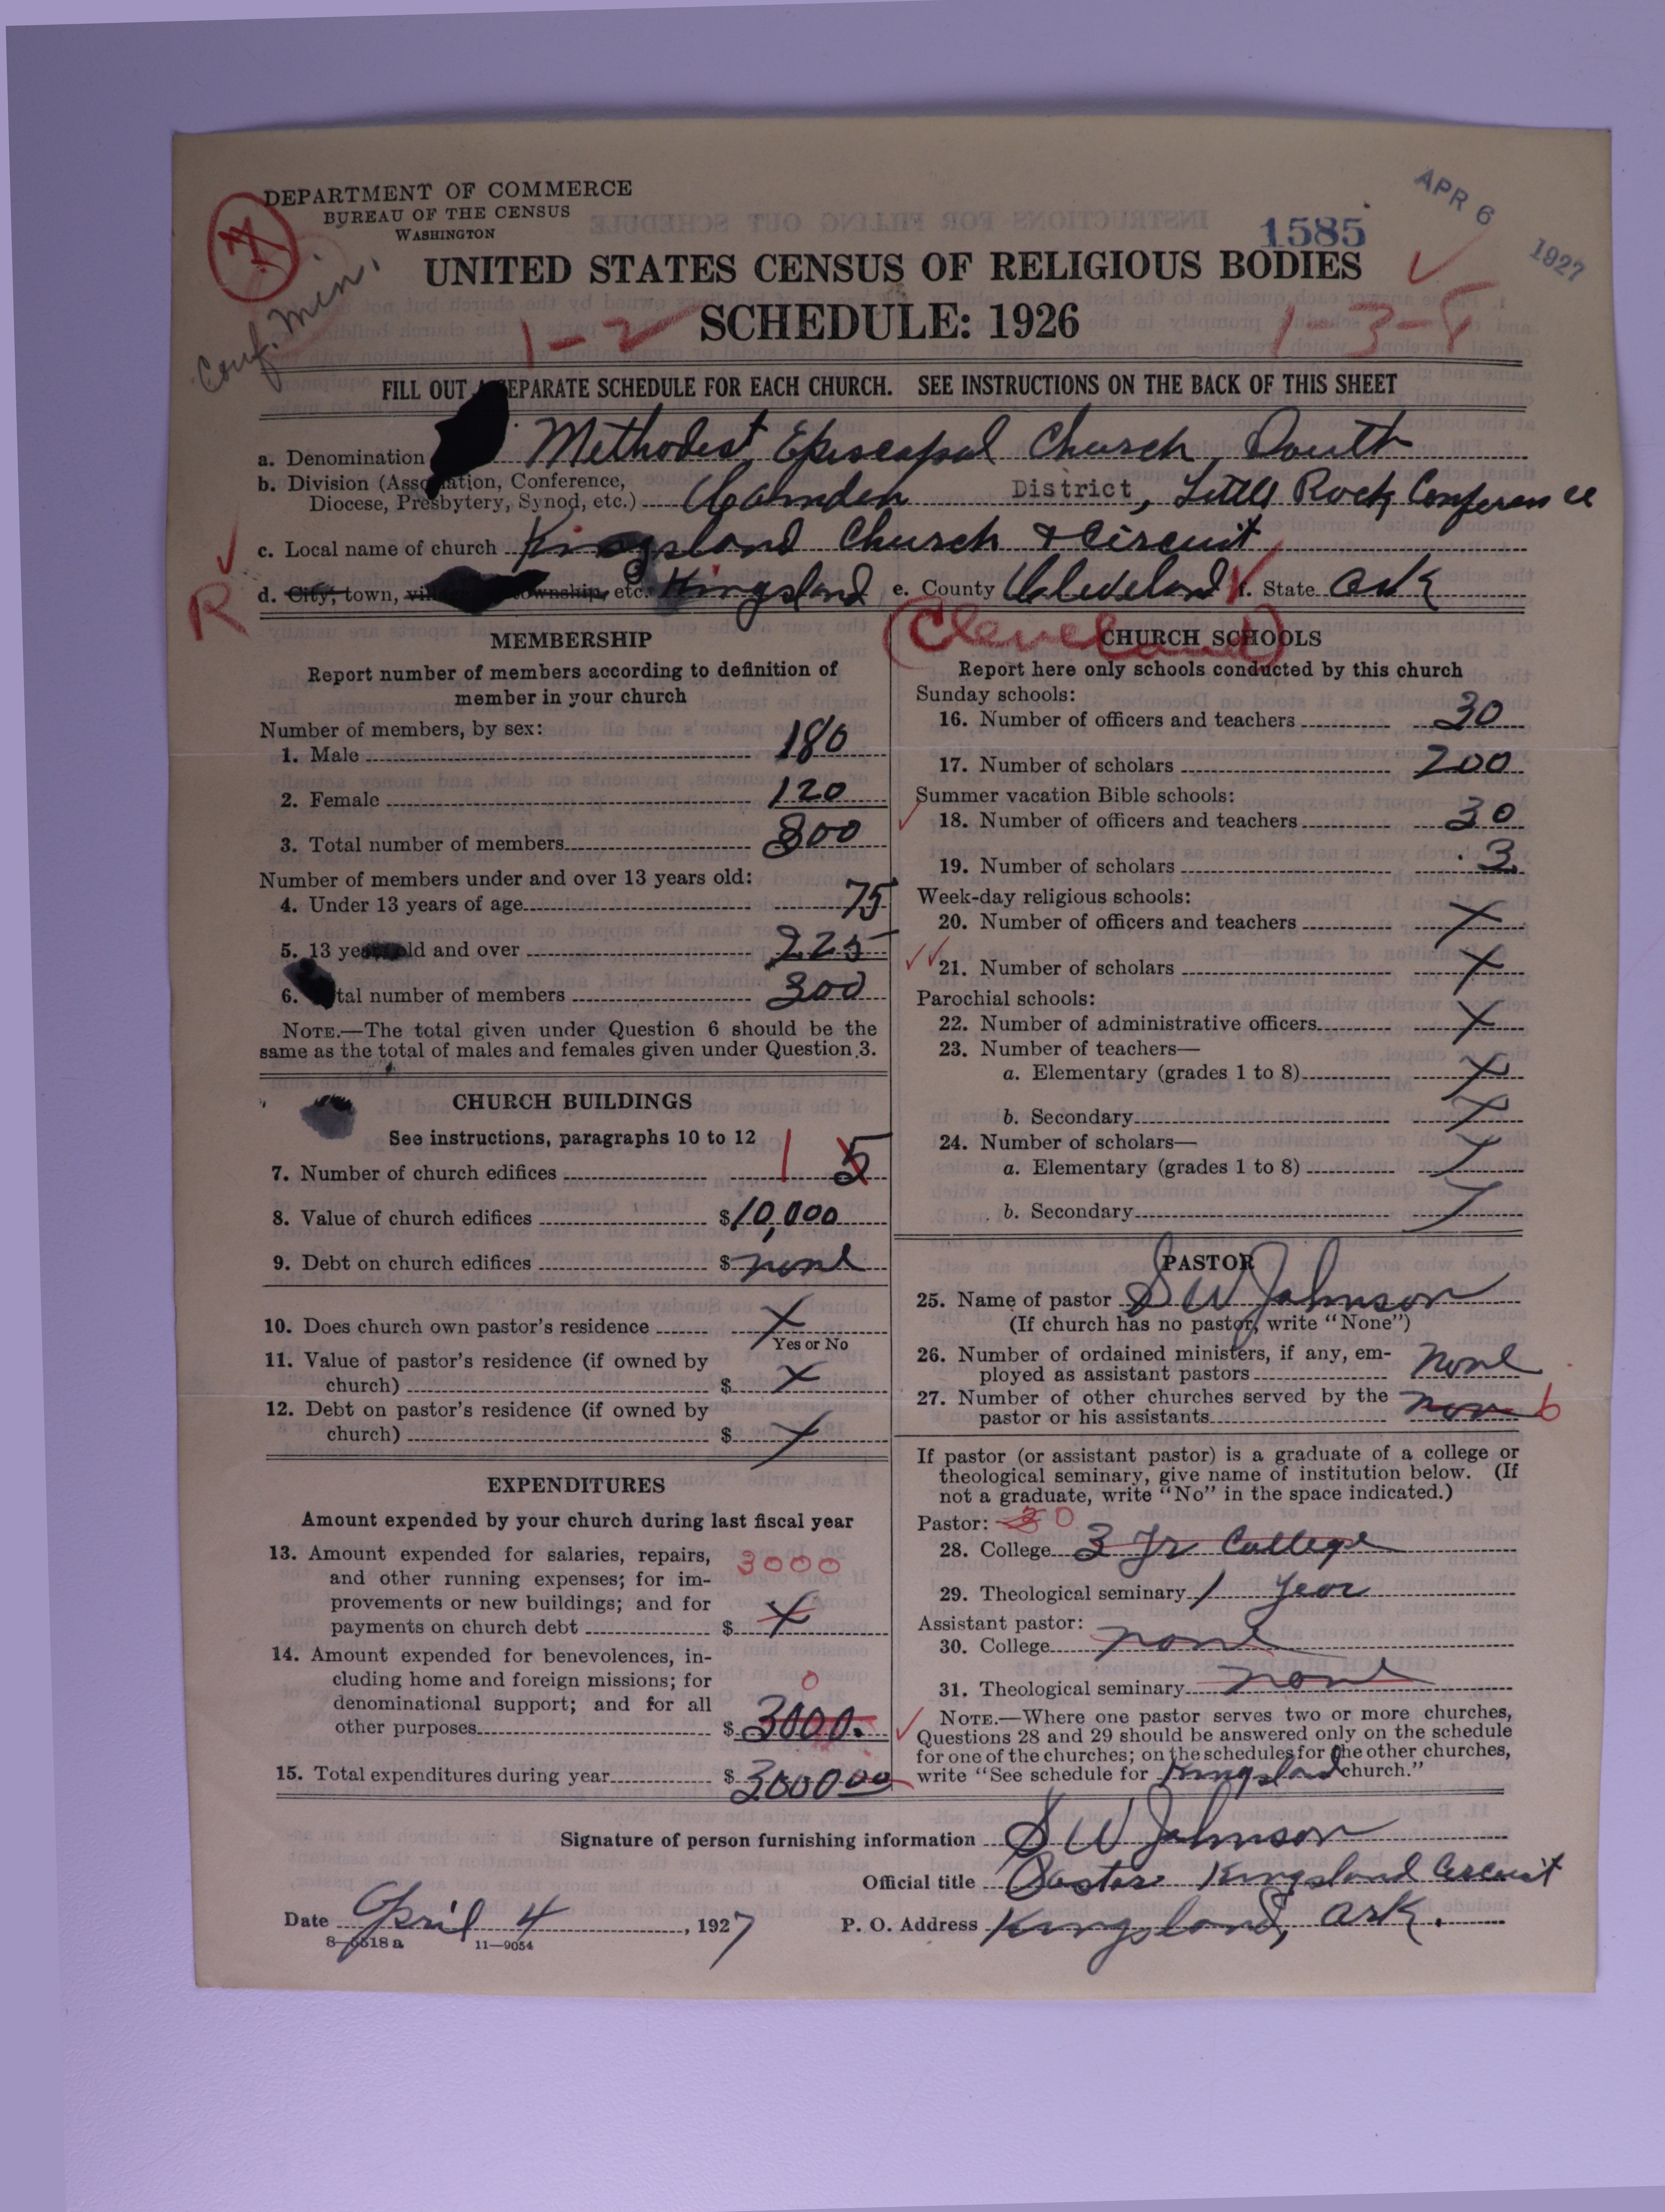 DEPARTMENT OF COMMERCE
BUREAU OF THE CENSUS
WASHINGTON
Conf. Min.
1585
APR 6 1927
UNITED STATES CENSUS OF RELIGIOUS BODIES
SCHEDULE: 1926
1-2
1-3-8
FILL OUT A SEPARATE SCHEDULE FOR EACH CHURCH. SEE INSTRUCTIONS ON THE BACK OF THIS SHEET
a. Denomination Methodist Episcopal Church, South
b. Division (Association, Conference,
Diocese, Presbytery, Synod, etc.) Camden District, Little Rock Conference
c. Local name of church Kingsland Church & Circuit
R
d. City, town, village, township, etc. Kingsland e. County Cleveland f. State Ark
(Cleveland)
MEMBERSHIP
Report number of members according to definition of
member in your church
Number of members, by sex:
1. Male 180
2. Female 120
3. Total number of members 300
Number of members under and over 13 years old:
4. Under 13 years of age 75
5. 13 years old and over 225
6. Total number of members 300
NOTE.—The total given under Question 6 should be the
same as the total of males and females given under Question 3.
CHURCH BUILDINGS
See instructions, paragraphs 10 to 12
7. Number of church edifices 1 5
8. Value of church edifices $10,000
9. Debt on church edifices $ none
10. Does church own pastor's residence X
Yes or No
11. Value of pastor's residence (if owned by
church) $ X
12. Debt on pastor's residence (if owned by
church) $ X
EXPENDITURES
Amount expended by your church during last fiscal year
13. Amount expended for salaries, repairs, 3000
and other running expenses; for im-
provements or new buildings; and for
payments on church debt $ X
14. Amount expended for benevolences, in-
cluding home and foreign missions; for 0
denominational support; and for all
other purposes $ 3000.
15. Total expenditures during year $ 3000 00
CHURCH SCHOOLS
Report here only schools conducted by this church
Sunday schools:
16. Number of officers and teachers 30
17. Number of scholars 200
Summer vacation Bible schools:
18. Number of officers and teachers 30
19. Number of scholars 3
Week-day religious schools:
20. Number of officers and teachers X
21. Number of scholars X
Parochial schools:
22. Number of administrative officers X
23. Number of teachers—
a. Elementary (grades 1 to 8) X
b. Secondary X
24. Number of scholars—
a. Elementary (grades 1 to 8) X
b. Secondary X
PASTOR
25. Name of pastor S W Johnson
(If church has no pastor, write "None")
26. Number of ordained ministers, if any, em-
ployed as assistant pastors none
27. Number of other churches served by the
pastor or his assistants 6
If pastor (or assistant pastor) is a graduate of a college or
theological seminary, give name of institution below. (If
not a graduate, write "No" in the space indicated.)
Pastor: 0
28. College 3 Yr College
29. Theological seminary 1 year
Assistant pastor:
30. College none
31. Theological seminary none
NOTE.—Where one pastor serves two or more churches,
Questions 28 and 29 should be answered only on the schedule
for one of the churches; on the schedules for the other churches,
write "See schedule for Kingsland church."
Signature of person furnishing information S W Johnson
Official title Pastor Kingsland Circuit
Date April 4, 1927 P. O. Address Kingsland, Ark.
8-5518 a 11—9054